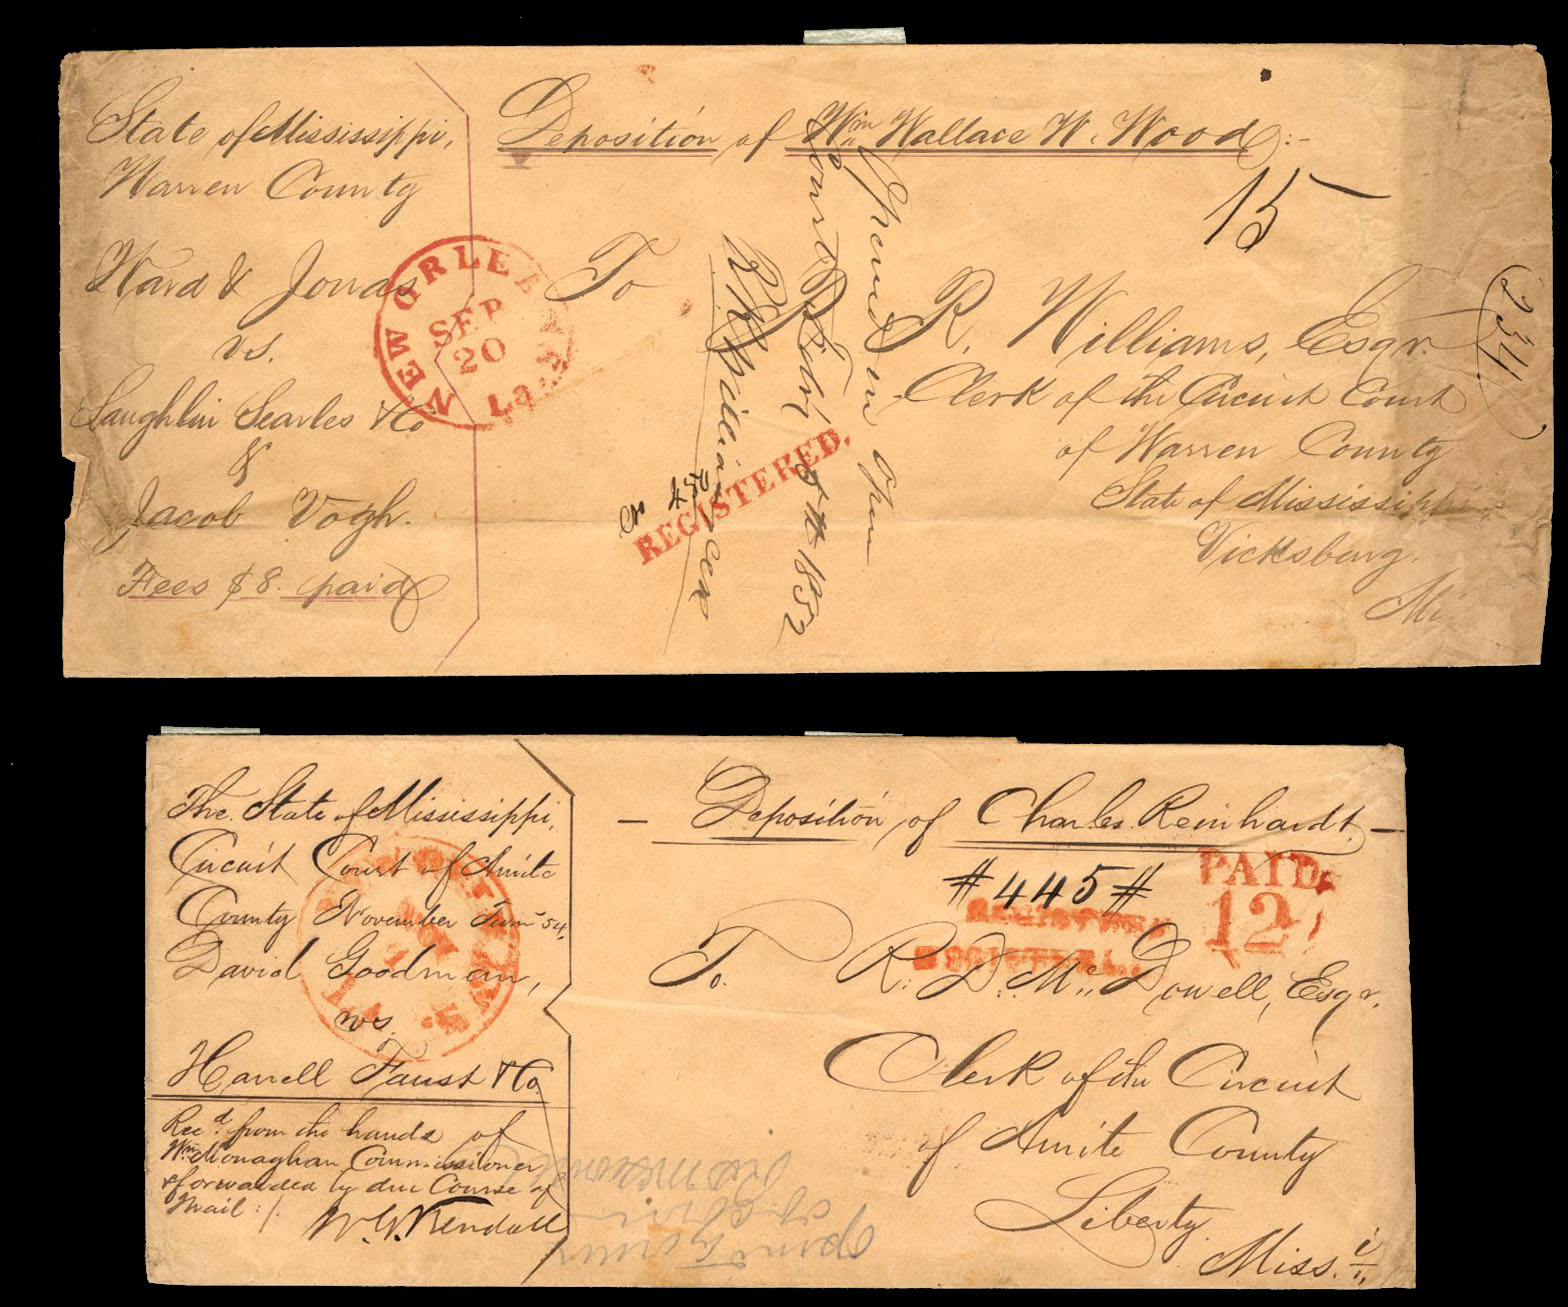 State of Mississippi,
Warren County
Ward & Jonas
vs.
Laughlin Searles & Co
&
Jacob Vogh.
Fees $8. paid
NEW ORLEANS La.
SEP
20
Deposition of Wm Wallace W. Wood:-
15
To
R. Williams, Esqr.
Clerk of the Circuit Court
of Warren County
State of Mississippi
Vicksburg.
Mi
234
No 450
REGISTERED.
Opened in open
Court 1852
R Williams Clk
The State of Mississippi,
Circuit Court of Amite
County November Term 54,
David Goodman,
vs.
Harrell Faust & Co
Recd. from the hands of
Wm Monaghan Commissioner
& forwarded by due Course of
Mail:/
W. G. Kendall
- Deposition of Charles Reinhardt -
#445#
PAID
12
REGISTERED
REGISTERED
To. R. D. Mc Dowell, Esqr.
Clerk of the Circuit
of Amite County
Liberty
Miss.i